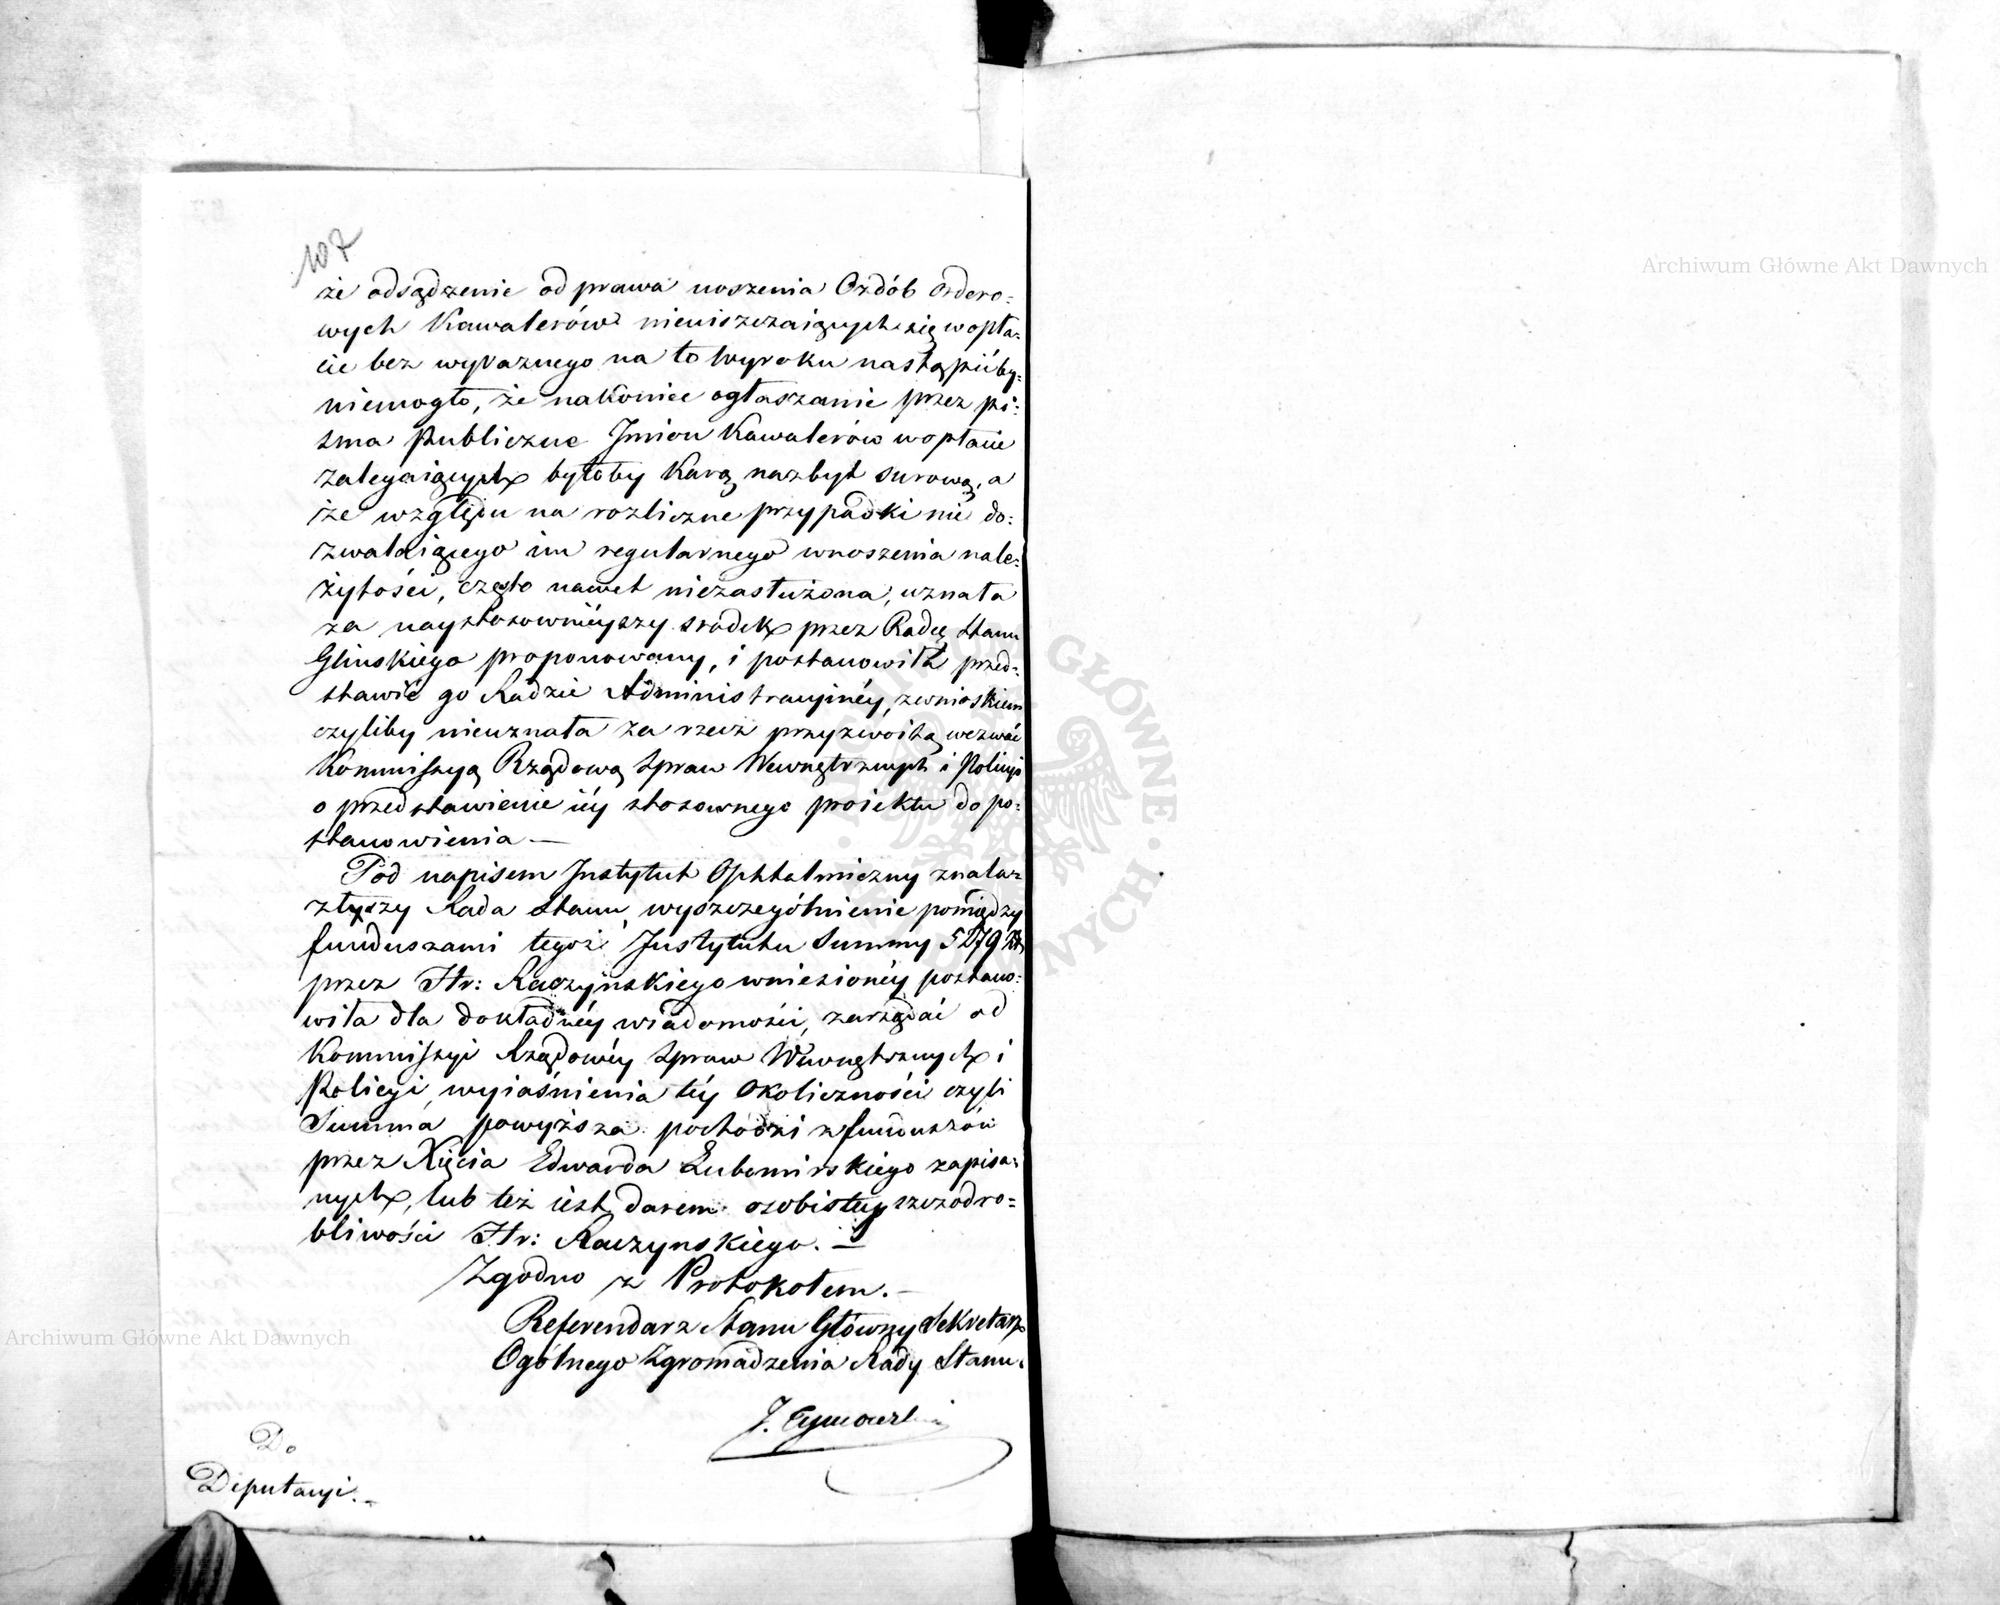 107
że odsądzenie od prawa noszenia Ozdób ordero=
wych Kawalerów nieuiszczaiących się w opła=
cie bez wyraznego na to wyroku nastąpićby=
niemogło, że nakoniec ogłaszanie przez pi=
sma Publiczne Jmion Kawalerów w opłacie
zalegaiących byłoby Karą nazbyt surową, a
że względu na rozliczne przypadki nie do=
zwalaiącego im regularnego wnoszenia nale=
żytości, często nawet niezasłużona, uznała
za naystosownieyszy srodek przez Radcę Stanu
Glinskiego proponowany, i postanowiła przed=
stawić go Radzie Administracyinéy, z wnioskiem
czyliby nieuznała za rzecz przyzwoitą wezwać
Kommissyą Rządową Spraw Wewnętrznych i Policyi
o przedstawienie iéy stosownego proiektu do po=
stanowienia. —
Pod napisem Instytut Ophtalmiczny znala=
złszy Rada Stanu, wyszczególnienie pomiędzy
funduszami tegoż Instytutu Summy 5279 Złt
przez Hr: Raczynskiego wniesionéy postano=
wiła dla dokładnéy wiadomości, zarządać od
Kommissyi Rządowéy Spraw Wewnętrznych i
Policyi, wyiaśnienia téy okoliczności czyli
Summa powyższa pochodzi z funduszów
przez Xięcia Edwarda Lubomirskiego zapisa=
nych, lub też iest darem osobistey szczodro=
bliwości Hr: Raczynskiego. —
Zgodno z Protokołem. —
Referendarz Stanu Główny Sekretarz
Ogólnego Zgromadzenia Rady Stanu.
J. Tymowski
Do
Deputacyi. —
Archiwum Główne Akt Dawnych
Archiwum Główne Akt Dawnych
GŁÓWNE
DAWNYCH